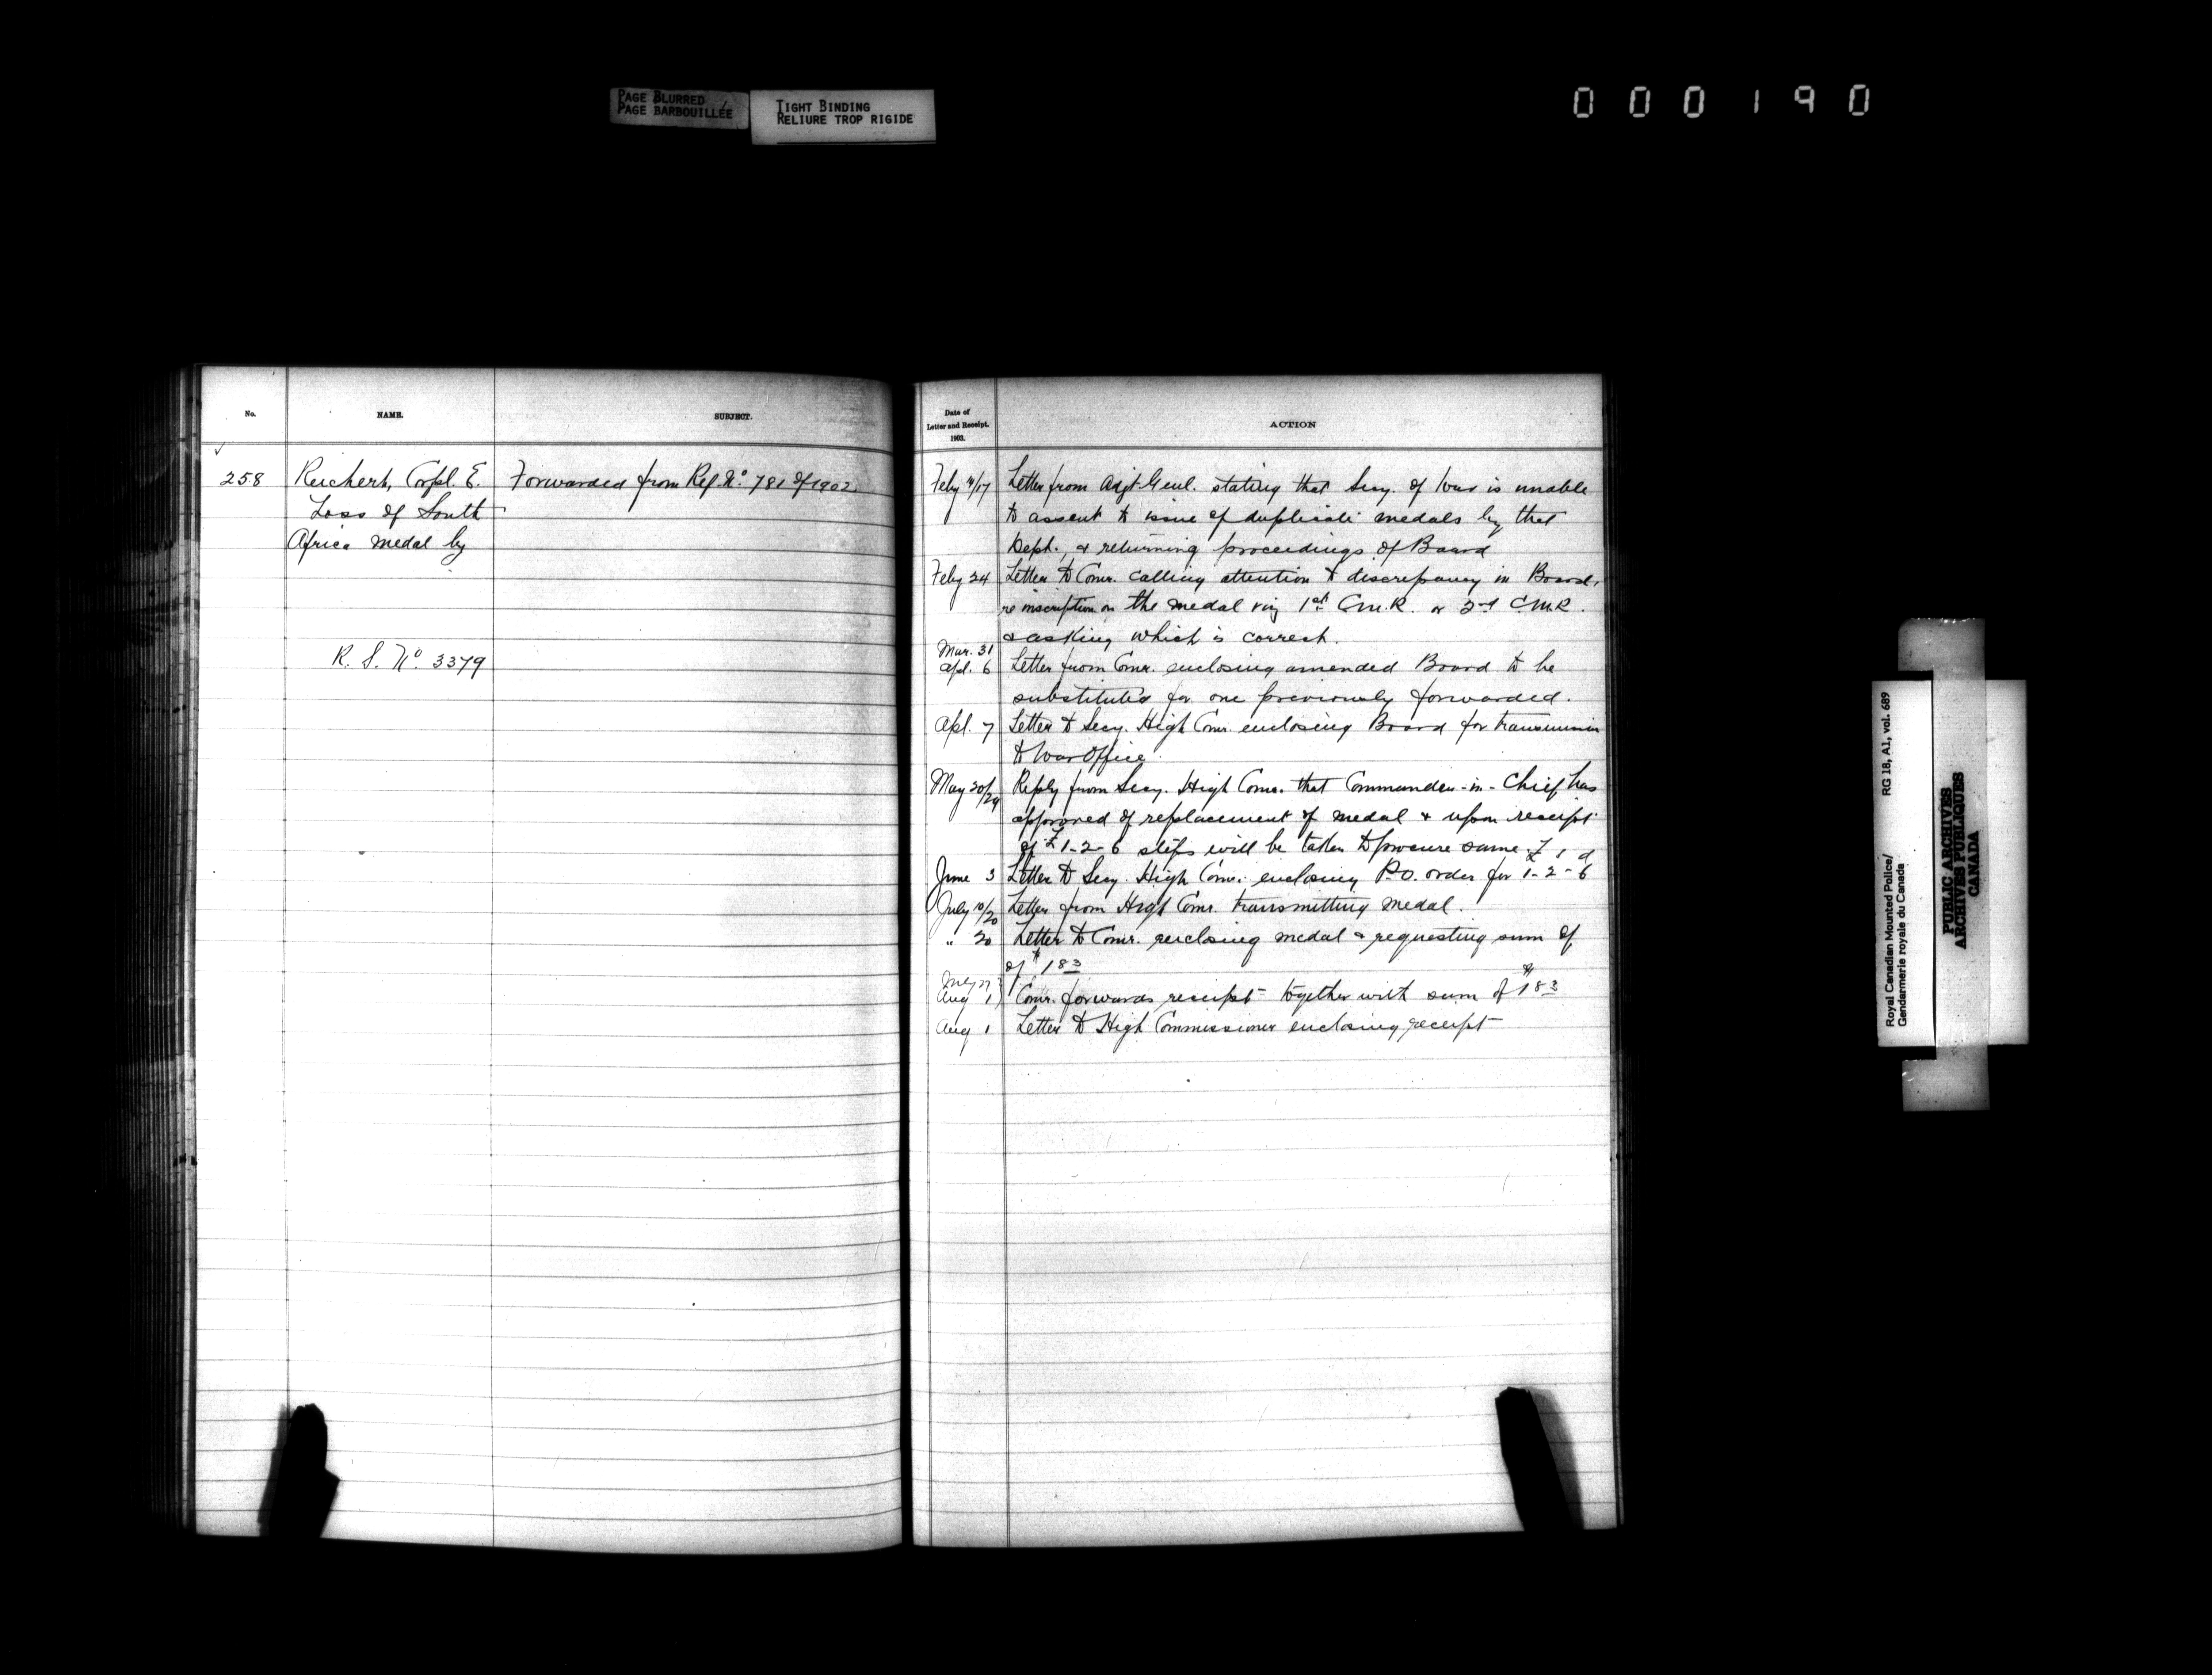 PAGE BLURRED
PAGE BARBOUILLÉE
TIGHT BINDING
RELIURE TROP RIGIDE
000190
No.
NAME.
SUBJECT.
258
Reichert, Corpl. E.
Forwarded from Ref. No. 781 of 1902.
Loss of South
Africa medal by
R. S. No 3379
Date of
Letter and Receipt.
1903.
ACTION
Feby 11/17 Letter from Adjt. Genl. stating that Secy. of War is unable
to assent to issue of duplicate medals by that
Dept., & returning proceedings of Board
Feby 24 Letter to Comr. calling attention to discrepancy in Board,
re inscription on the medal viz 1st C.M.R. or 2nd C.M.R.
& asking which is correct.
Mar. 31
Apl. 6 Letter from Comr. enclosing amended Board to be
substituted for one previously forwarded.
Apl. 7 Letter to Secy. High Comr. enclosing Board for transmission
to War Office
May 20/29 Reply from Secy. High Comr. that Commander-in-Chief has
approved of replacement of medal & upon receipt
of £1-2-6 steps will be taken to procure same.
June 3 Letter to Secy. High Comr. enclosing P.O. order for £1-2-6
July 10/20 Letter from High Comr. transmitting medal.
" 20 Letter to Comr. enclosing medal & requesting sum of
of $
July 27
Aug 1) Comr. forwards receipt together with sum of $
Aug 1 Letter to High Commissioner enclosing receipt
Royal Canadian Mounted Police/
Gendarmerie royale du Canada
RG 18, A1, vol. 689
PUBLIC ARCHIVES
ARCHIVES PUBLIQUES
CANADA